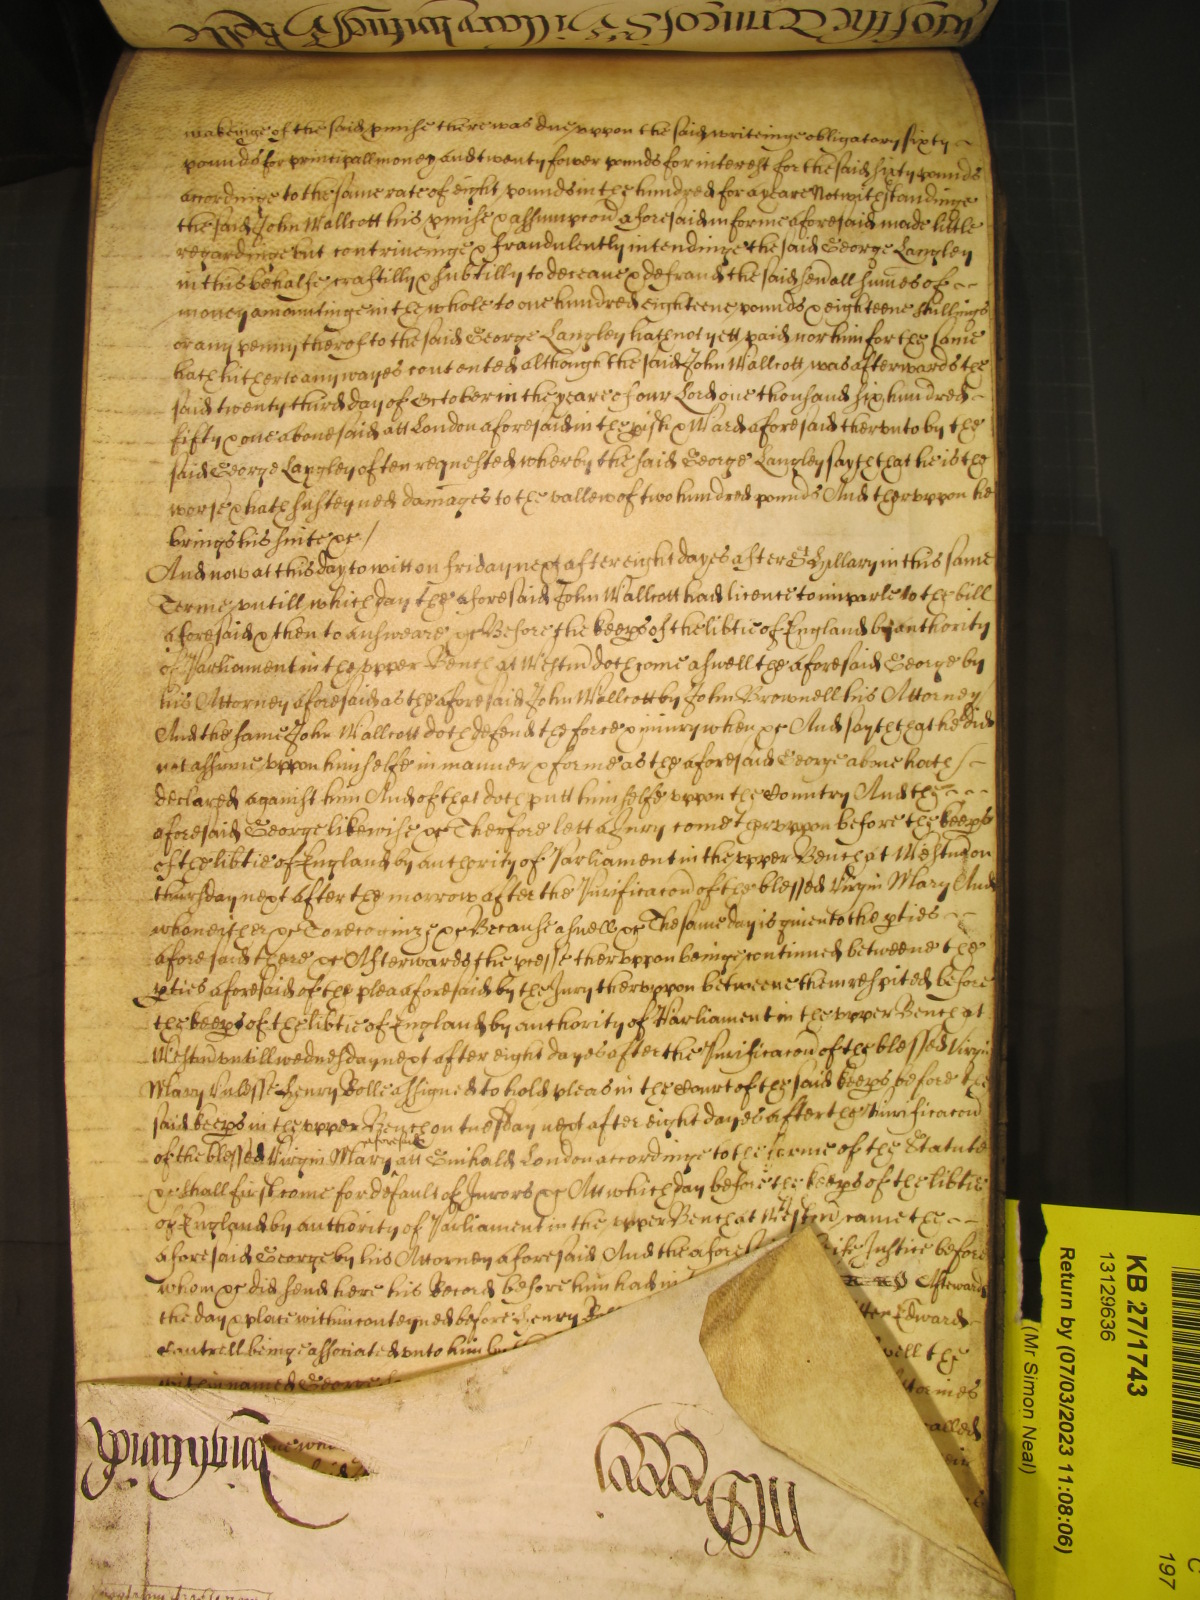 makeinge of the said pmise there was due vppon the said writeinge obligatory sixty
pounds for principall money and twenty fower pounds for interest for the said sixty pounds
accordinge to the same rate of eight pounds in the hundred for a yeare Notwithstandinge
the said John Wallcott his pmise & assumpcon aforesaid in forme aforesaid made little
regardinge but contriveinge & fraudulently intendinge the said George Langley
in this behalfe craftilly & subtilly to deceave & defraud the said sevall summes of
money amountinge in the whole to one hundred eighteene pounds & eighteene shillings
or any penny therof to the said George Langley hath not yett paid nor him for the same
hath hitherto any wayes contented although the said John Wallcott was afterwards the
said twenty third day of October in the yeare of our Lord one thousand six hundred
fifty & one abovesaid att London aforesaid in the pish & Ward aforesaid therunto by the
said George Langley often requested wherby the said George Langley sayth that he is the
worse & hath susteyned damages to the vallew of two hundred pounds And thervppon he
brings his suite &c /
And now at this day to witt on friday next after eight dayes after St Hyllary in this same
Terme vntill which day the aforesaid John Wallcott had licence to imparle to the bill
aforesaid & then to answeare &c Before the keeps of the libtie of England by authority
of Parliament in the vpper Bench at Westm doth come aswell the aforesaid George by
his Attorney aforesaid as the aforesaid John Wallcott by John Brownell his Attorney
And the same John Wallcott doth defend the force & iniury when &c And sayth that he did
not assume vppon himselfe in manner & forme as the aforesaid George above hath
declared against him And of that doth putt himselfe vppon the Country And the
aforesaid George likewise &c Therfore lett a Jury come thervppon before the keeps
of the libtie of England by authority of Parliament in the vpper Bench at Westm on
thursday next after the morrow after the Purificacon of the blessed Virgin Mary And
who neither &c To recognize &c Because aswell &c The same day is given to the pties
aforesaid there &c Afterwards the pcesse thervppon beinge continued betweene the
pties aforesaid of the plea aforesaid by the Jury thervppon betweene them respited before
the keeps of the libtie of England by authority of Parliament in the vpper Bench at
Westm vntill wednesday next after eight dayes after the Purificacon of the blessed Virgin
Mary Vnlesse Henry Rolle assigned to hold pleas in the Court of the said keeps before the
said keeps in the vpper Bench on tuesday next after eight dayes after the Purificacon
of the blessed Virgin Mary aforesaid att Guihald London accordinge to the forme of the Statute
&c shall first come for default of Jurors &c Att which day before the keeps of the libtie
of England by authority of Parliament in the vpper Bench at Westm came the
aforesaid George by his Attorney aforesaid And the afore Justice before
whom &c did send here his Record before him had in Afterwards
the day & place within conteyned before Henry Edward
Cantrell beinge associated vnto him by well the
within named George
called
KB 27/1743
13129636
Return by (07/03/2023 11:08:06)
(Mr Simon Neal)
C
197